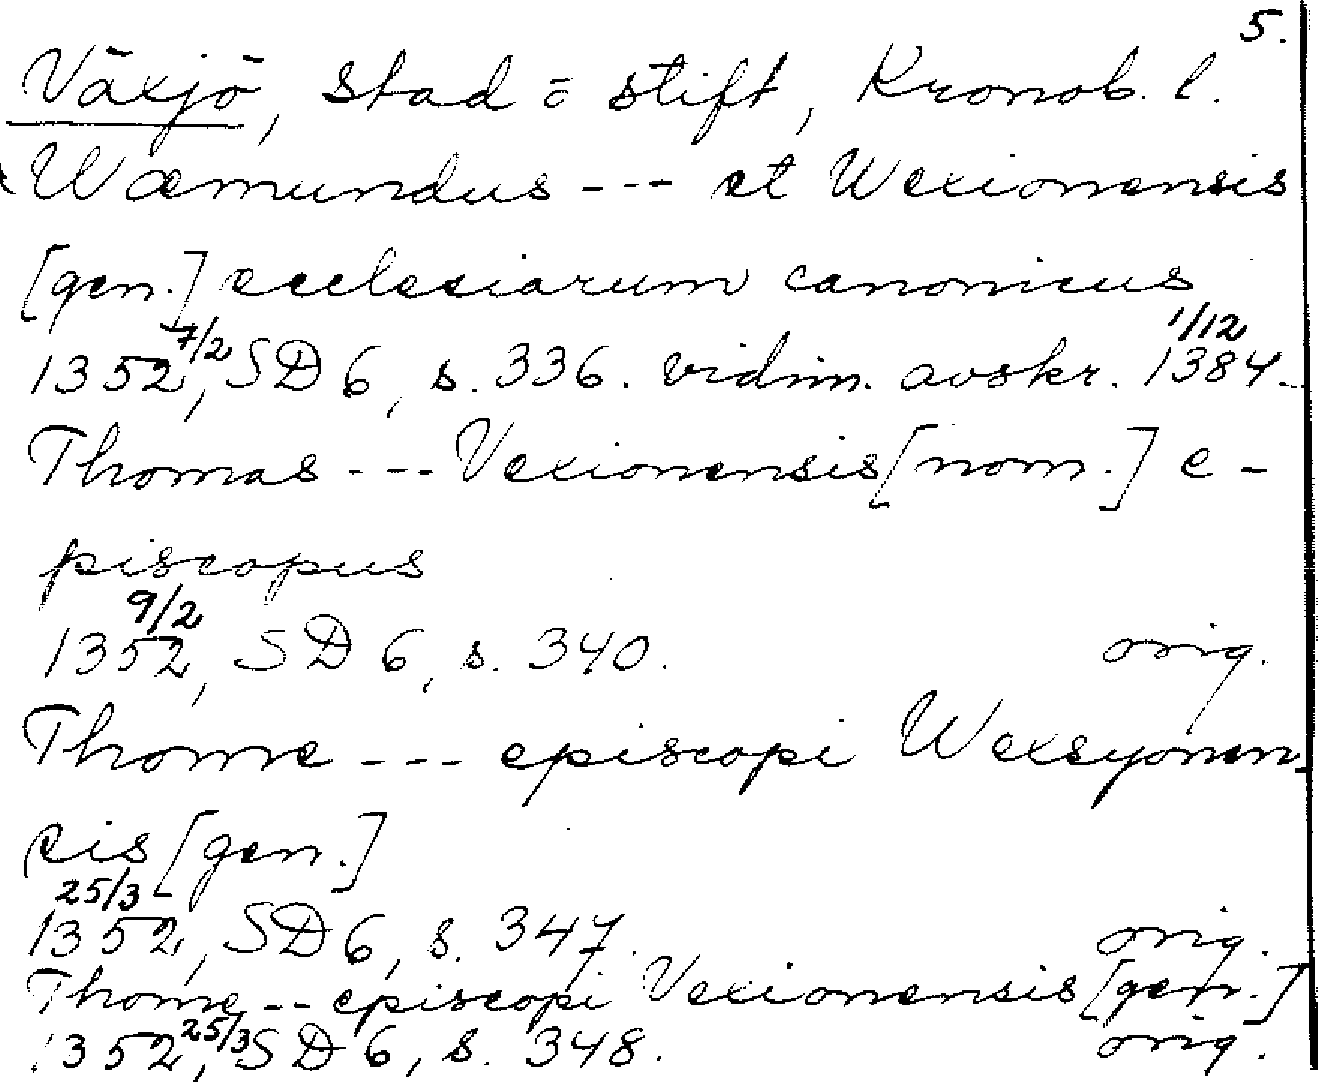 5.
Växjö, stad o stift, Kronob. l.
Wæmundus --- et Wexionensis
[gen.] ecclesiarum canonicus
1352 7/2, SD 6, s. 336. vidim. avskr. 1384 1/12
Thomas --- Vexionensis [nom.] e-
piscopus
1352 9/2, SD 6, s. 340. orig.
Thome --- episcopi Wexsyonen-
cis [gen.]
1352 25/3, SD 6, s. 347. orig.
Thome -- episcopi Vexionensis [gen.]
1352 25/3, SD 6, s. 348. orig.